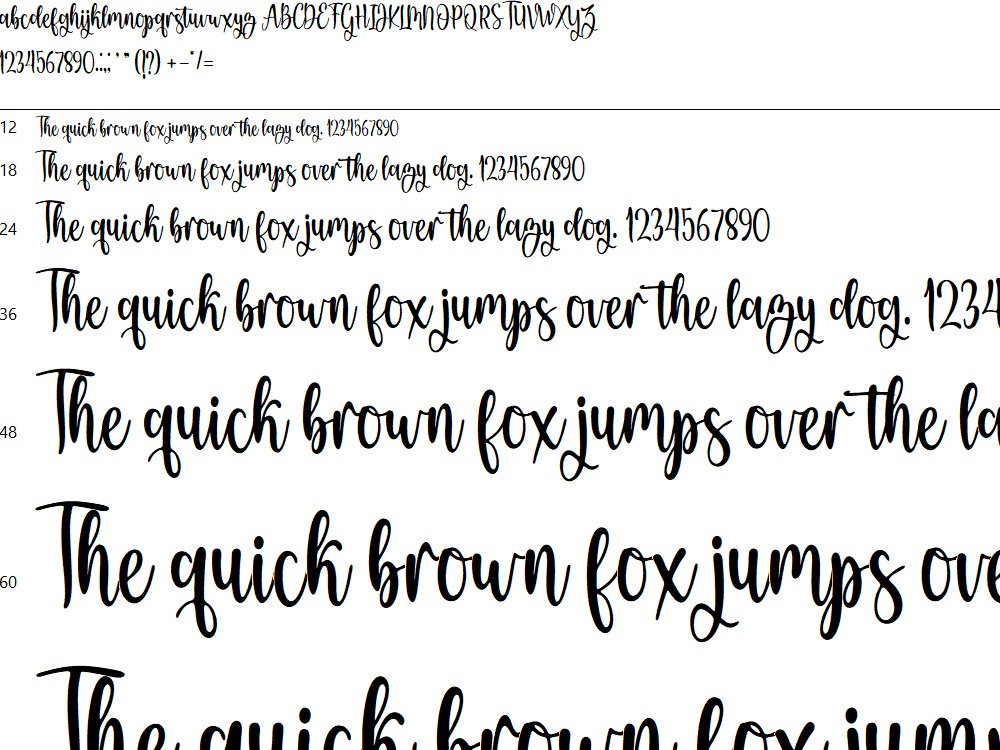 abcdefghijklmnopqrstuvwxyz ABCDEFGHIJKLMNOPQRSTUVWXYZ
1234567890.:,; ' " (!?) +-*/=
12 The quick brown fox jumps over the lazy dog. 1234567890
18 The quick brown fox jumps over the lazy dog. 1234567890
24 The quick brown fox jumps over the lazy dog. 1234567890
36 The quick brown fox jumps over the lazy dog. 1234
48 The quick brown fox jumps over the la
60 The quick brown fox jumps ove
The quick brown fox jum